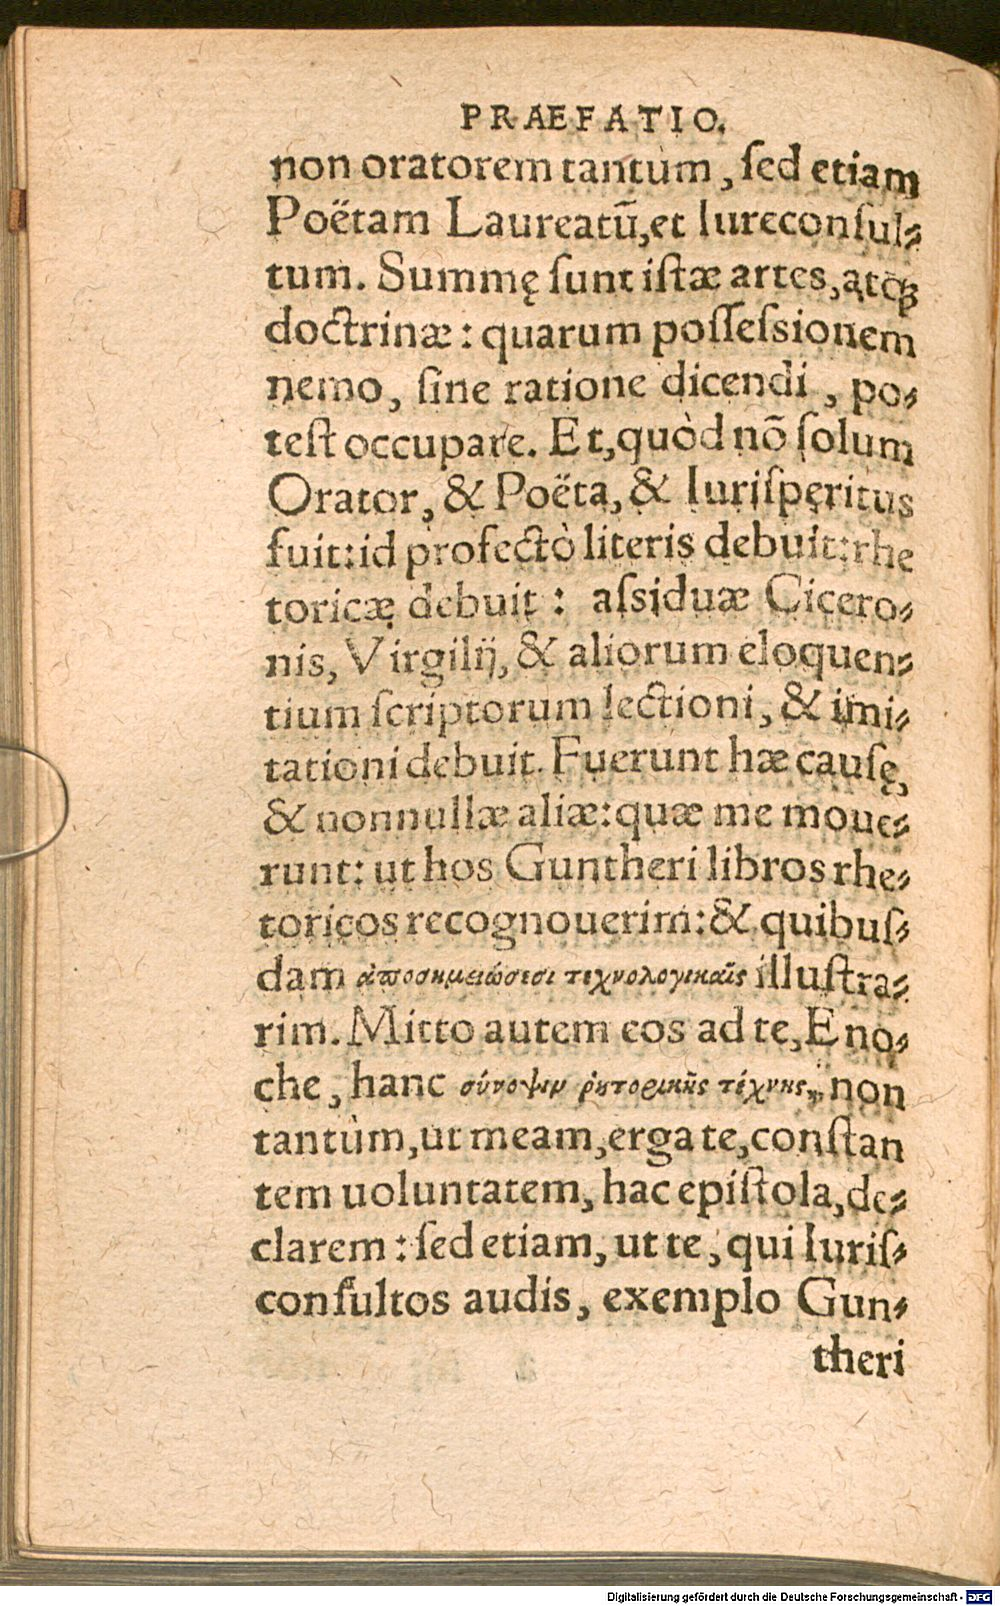 PRAEFATIO.
non oratorem tantùm, ſed etiam
Poëtam Laureatũ, et Iureconſul-
tum. Summę ſunt iſtæ artes, atq;
doctrinæ: quarum poſſeſsionem
nemo, ſine ratione dicendi, po-
teſt occupare. Et, quòd nõ ſolum
Orator, & Poëta, & Iuriſperitus
fuit: id profectò literis debuit: rhe
toricæ debuit: aſsiduæ Cicero-
nis, Virgilij, & aliorum eloquen-
tium ſcriptorum lectioni, & imi-
tationi debuit. Fuerunt hæ cauſę,
& nonnullæ aliæ: quæ me moue-
runt: ut hos Guntheri libros rhe-
toricos recognouerim: & quibuſ-
dam ἀποσημειώσεσι τεχνολογικαῖς illuſtra-
rim. Mitto autem eos ad te, Eno-
che, hanc σύνοψιμ ῥητορικῆς τέχνης, non
tantùm, ut meam, erga te, conſtan
tem uoluntatem, hac epiſtola, de-
clarem: ſed etiam, ut te, qui Iuriſ-
conſultos audis, exemplo Gun-
theri
Digitalisierung gefördert durch die Deutsche Forschungsgemeinschaft - DFG